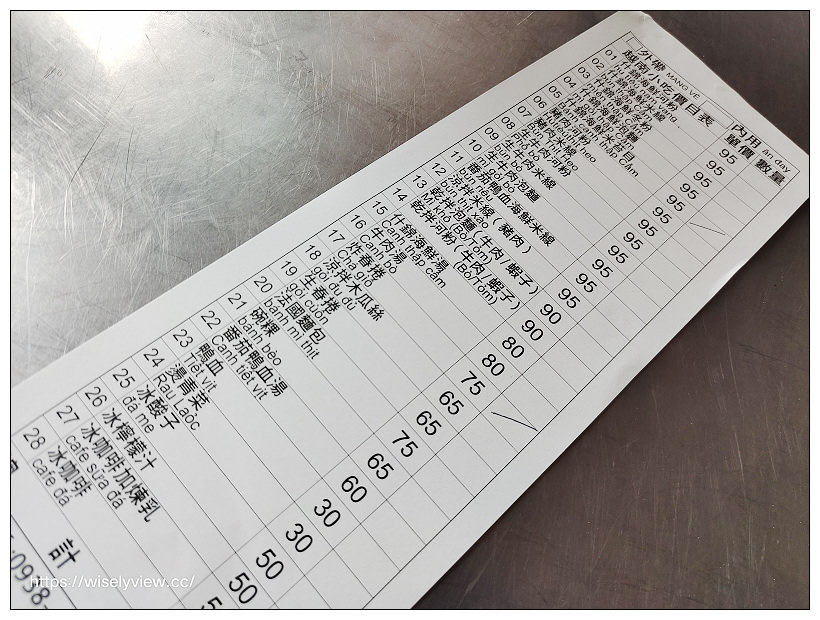 外帶 MANG VỀ 內用 ăn đay
越南小吃價目表 單價 數量
01 什錦海鮮河粉 95
02 什錦海鮮米線 95
03 什錦海鮮冬粉
04 什錦海鮮泡麵
05 什錦海鮮米苔目
06 豬肉河粉
07 豬肉米線
08 生牛肉河粉
phở bò
09 生牛肉米線
bún bò
10 生牛肉泡麵
mì gói bò
11 番茄鴨血海鮮米線
bún riêu
12 涼拌米線(豬肉)
bún thịt xào
13 乾拌泡麵(牛肉/蝦子)
Mì khô (Bò/Tôm)
14 乾拌河粉(牛肉/蝦子)
(Bò/Tôm)
15 什錦海鮮湯
Canh thập cẩm
16 牛肉湯
Canh bò
17 炸春捲
Chả giò
18 涼拌木瓜絲
gỏi đu đủ
19 生春捲
gỏi cuốn
20 法國麵包
bánh mì thịt
21 碗粿
bánh bèo
22 番茄鴨血湯
Canh tiết vịt
23 鴨血
Tiết vịt
24 燙青菜
Rau Laòc
25 冰酸子
đá me
26 冰檸檬汁
27 冰咖啡加煉乳
cafe sữa đá
28 冰咖啡
cafe đá
95
95
95
95
95
95
95
90
90
80
80
75
65
75
65
60
30
30
50
50
計
0938-
https://wiselyview.cc/